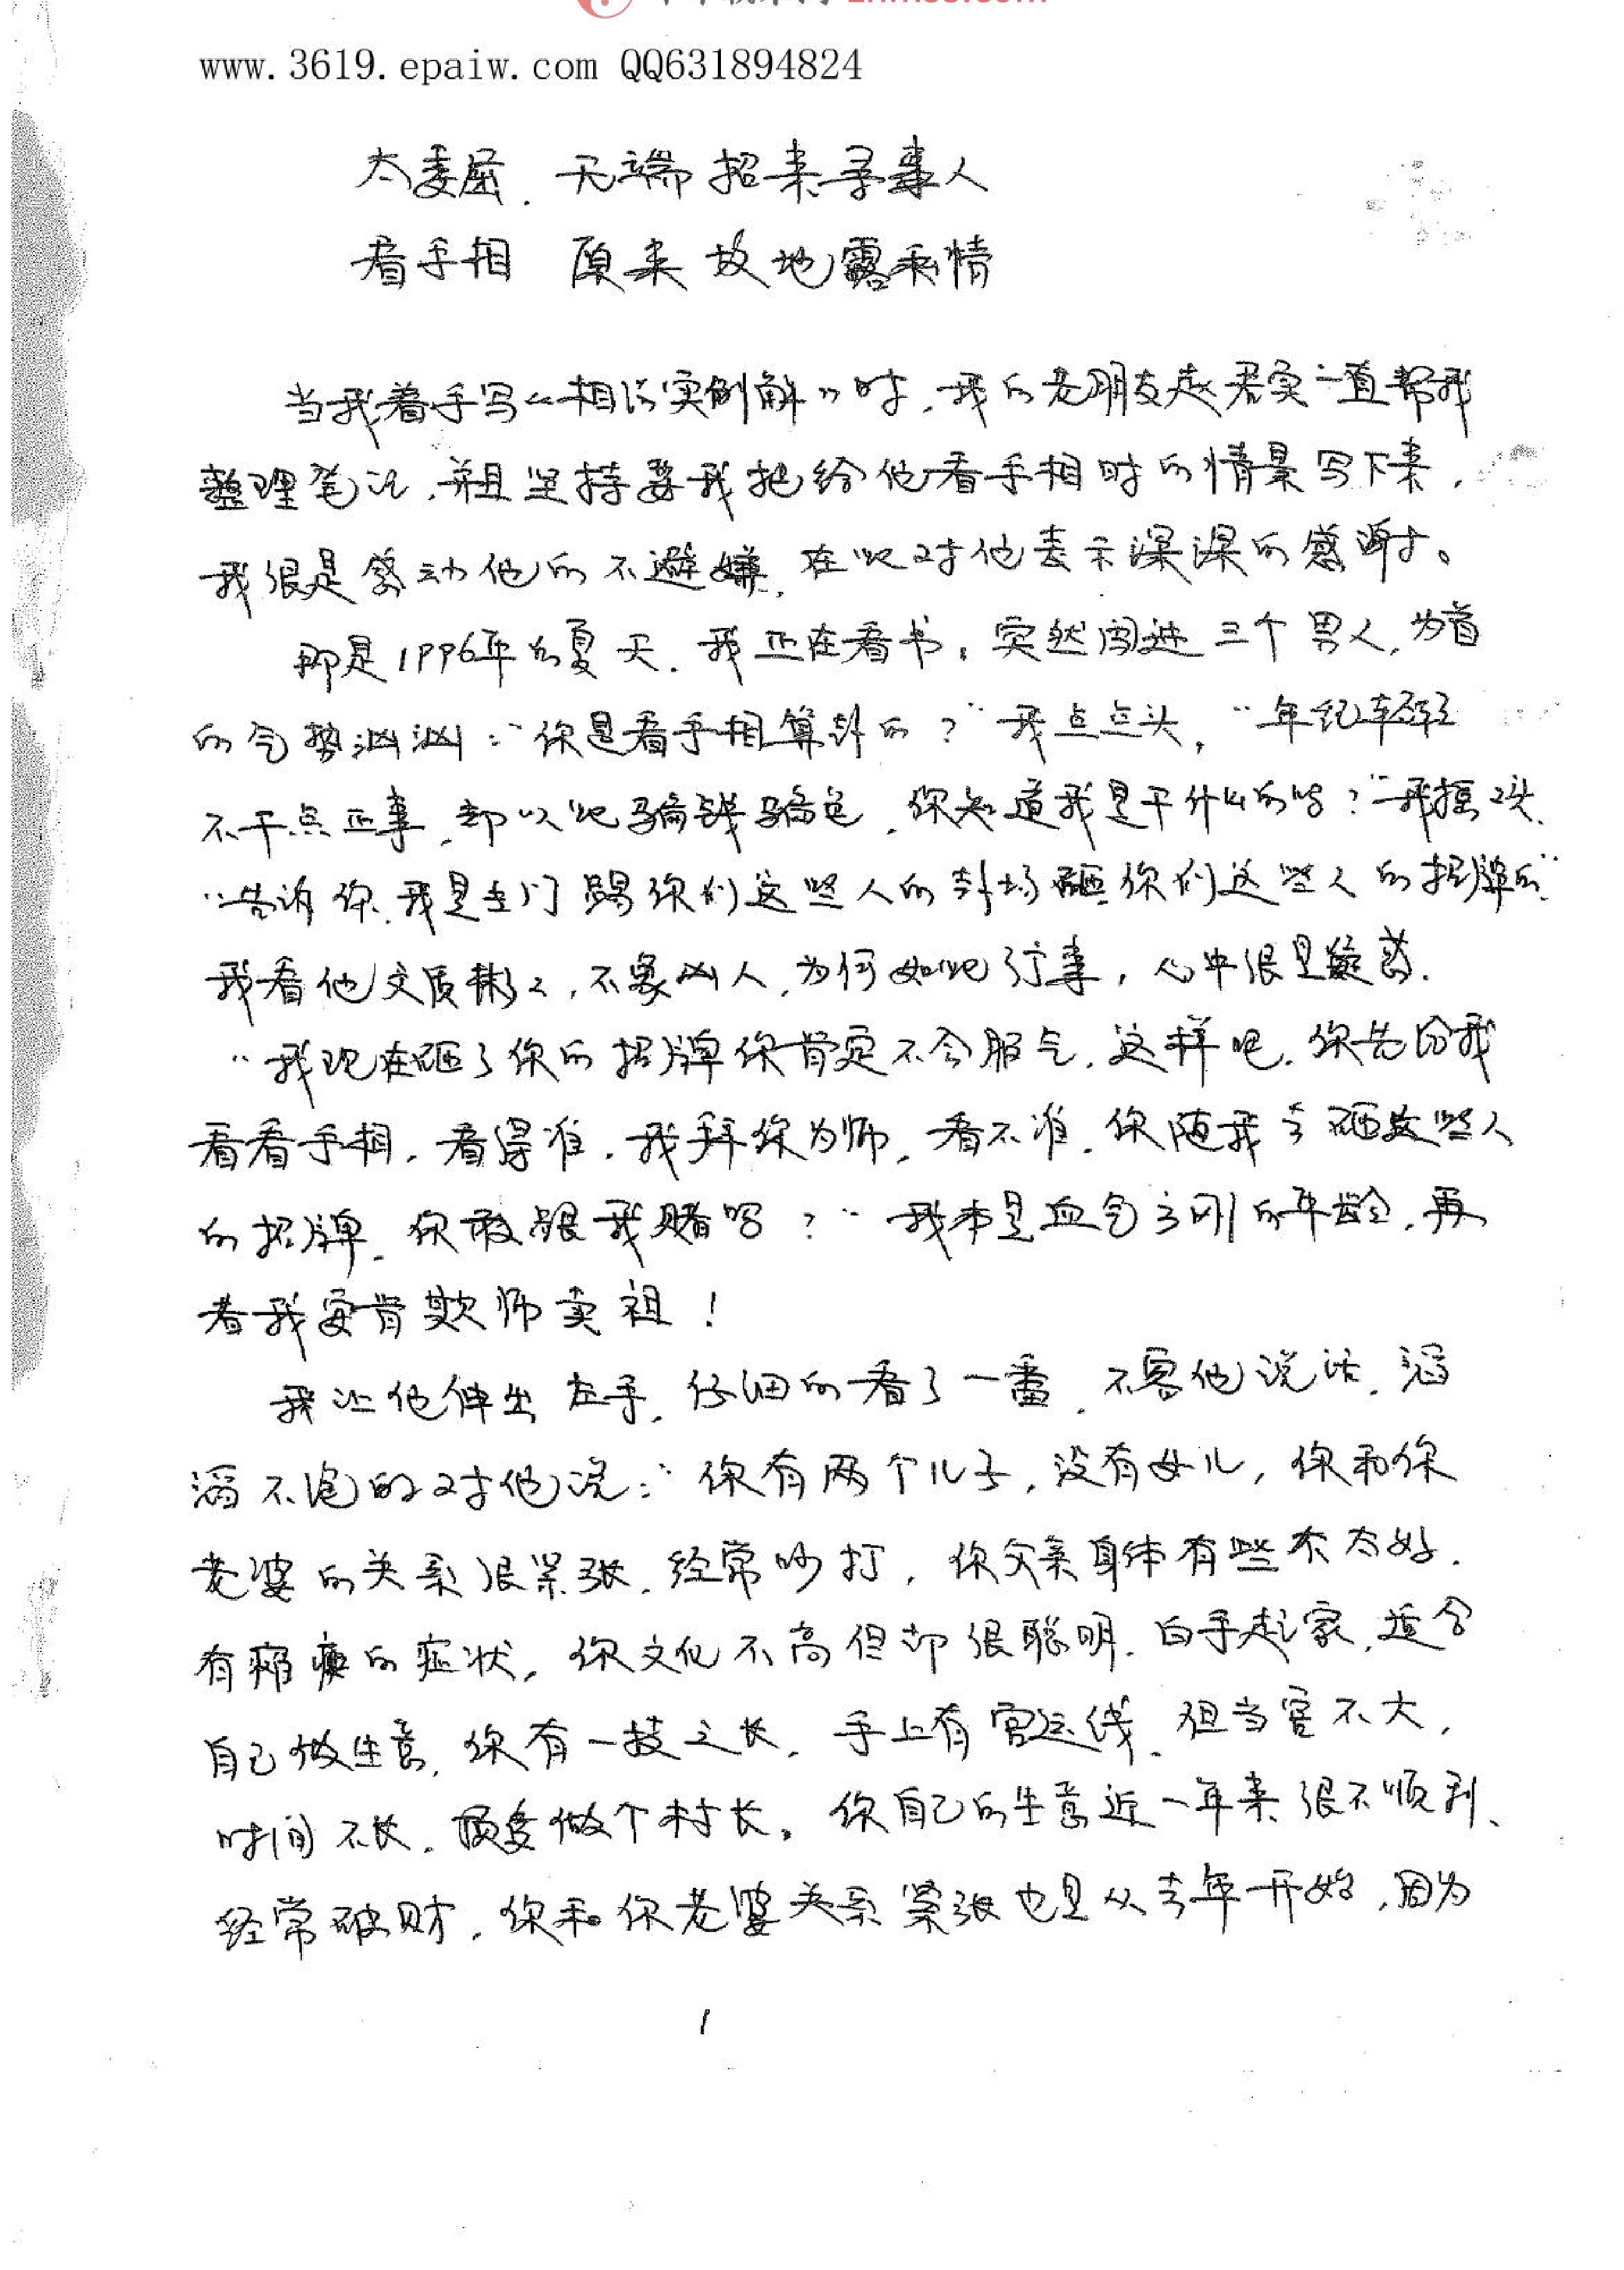 www.3619.epaiw.com QQ631894824
太委屈.无端招来寻事人
看手相 原来故地露私情
当我着手写“相法实例解”时,我的老朋友赵君实一直帮我
整理笔记,并且坚持要我把给他看手相时的情景写下来,
我很是感动他的不避嫌,在此对他表示深深的感谢。
那是1996年的夏天.我正在看书,突然闯进三个男人,为首
的气势汹汹:“你是看手相算卦的?”我点点头,“年纪轻轻
不干点正事,却以此骗钱骗色,你知道我是干什么的吗?”我摇头.
“告诉你.我是专门踢你们这些人的卦场砸你们这些人的招牌的”
我看他文质彬々,不象凶人,为何如此行事,心中很是疑惑.
“我现在砸了你的招牌你肯定不会服气.这样吧.你先给我
看看手相.看得准.我拜你为师.看不准.你随我去砸这些人
的招牌.你敢跟我赌吗?”我本是血气方刚的年龄.再
者我安肯欺师卖祖!
我让他伸出左手.仔细的看了一番.不容他说话.滔
滔不绝的对他说:“你有两个儿子,没有女儿,你和你
老婆的关系很紧张.经常吵打,你父亲身体有些不太好.
有瘫痪的症状,你文化不高但却很聪明.白手起家,适合
自己做生意.你有一技之长.手上有官运线.但当官不大,
时间不长.顶多做个村长。你自己的生意近一年来很不顺利、
经常破财.你和你老婆关系紧张也是从去年开始,因为
1